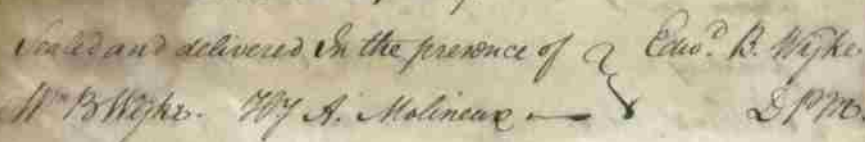 Sealed and delivered In the presence of } Edwd. B. Wyke
Wm B Wyke. Hy A. Molineux — D P M.